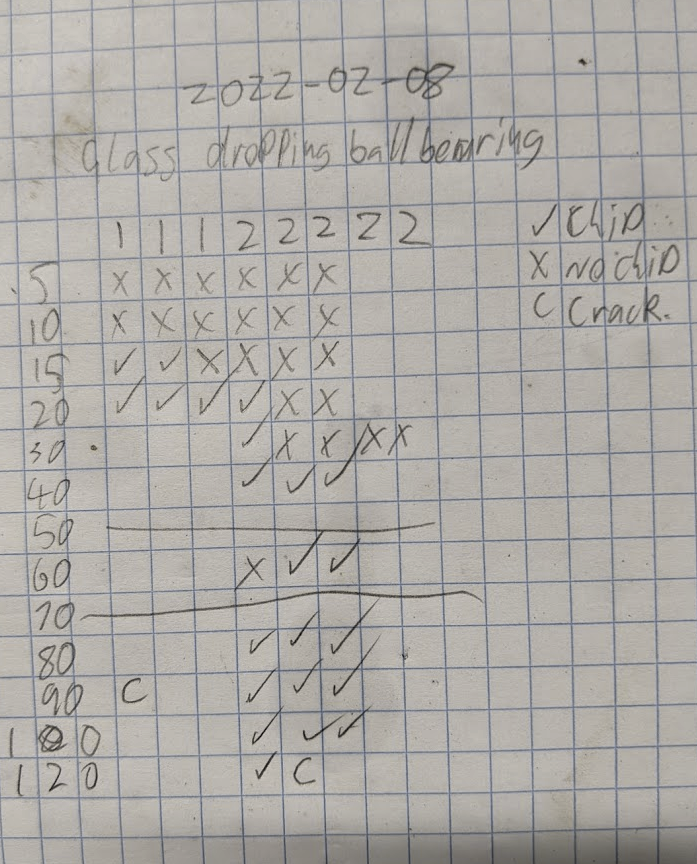 2022-02-08
Glass dropping ball bearing
1 1 1 2 2 2 2 2 ✓ Chip
5 X X X X X X X No chip
10 X X X X X X C Crack.
15 ✓ ✓ X X X X
20 ✓ ✓ ✓ ✓ X X
30 ✓ X X X X
40 ✓ ✓ ✓
50
60 X ✓ ✓
70
80 ✓ ✓ ✓
90 C ✓ ✓ ✓
100 ✓ ✓ ✓
120 ✓ C